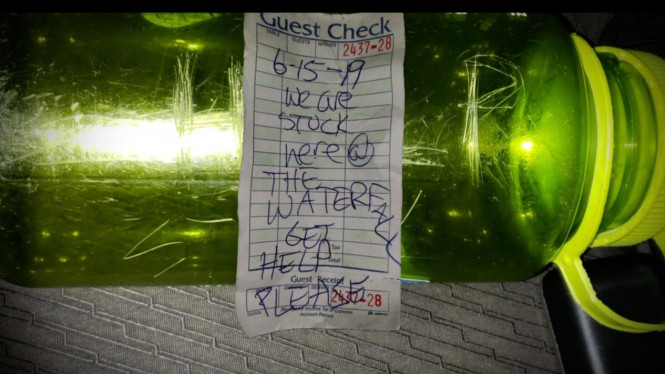 Guest Check
2437-28
6-15-19
We are
STUCK
here @
THE
WATERFALL
GET
Tax
HELP
Total
Guest Receipt
PLEASE
2437-28